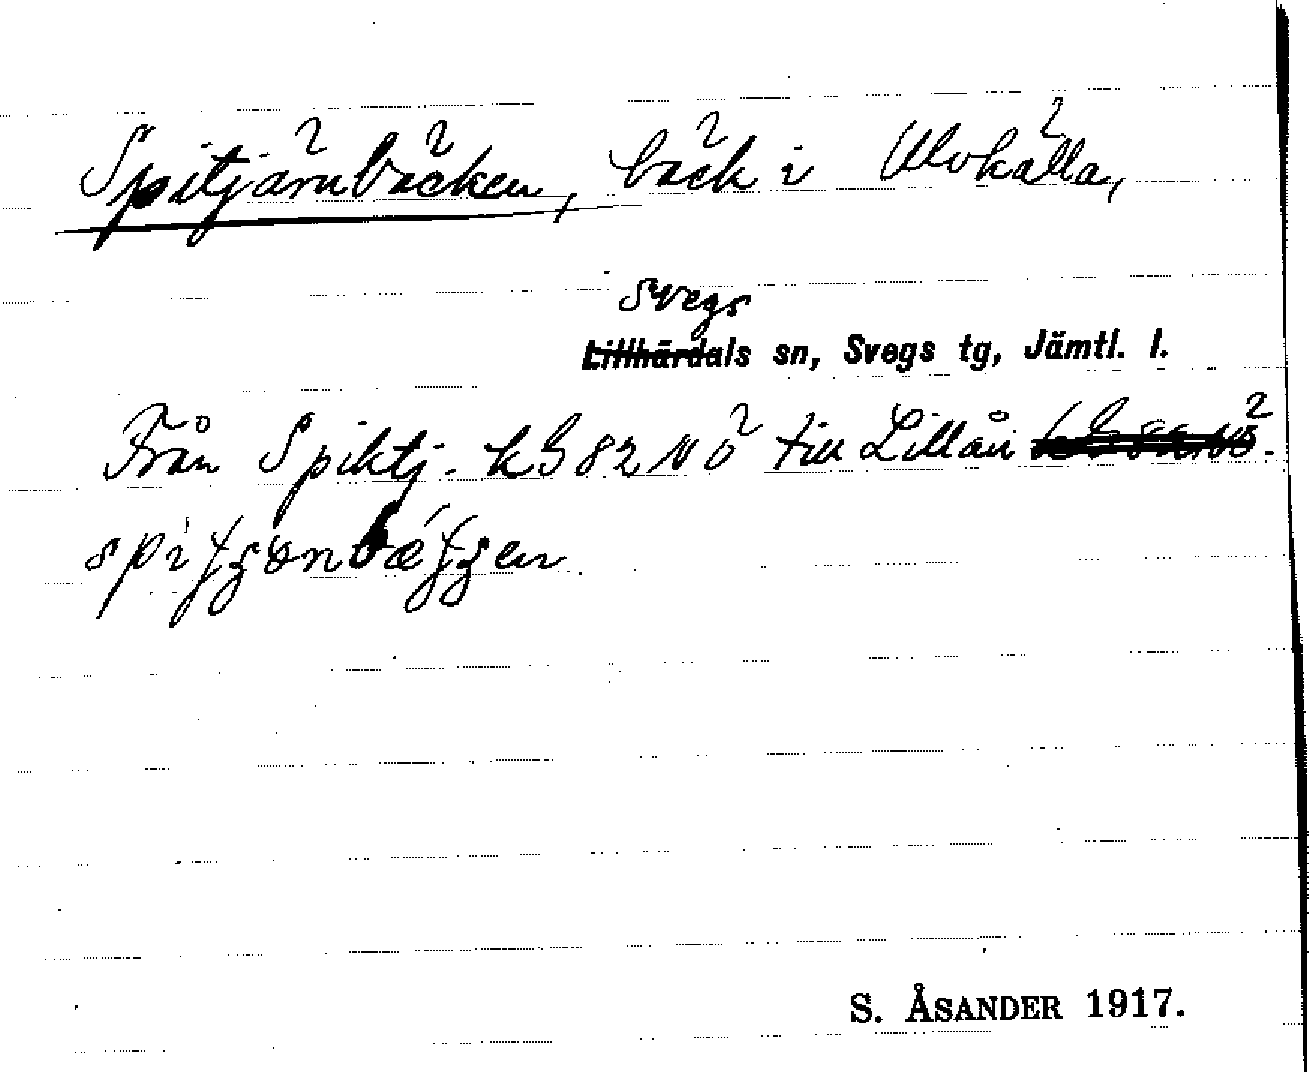 Spitjärnbäcken, bäck i Ulvkälla,
Svegs
Lillhärdals sn, Svegs tg, Jämtl. l.
Från Spiktj. k G 82 NÖ till Lillån
S. ÅSANDER 1917.